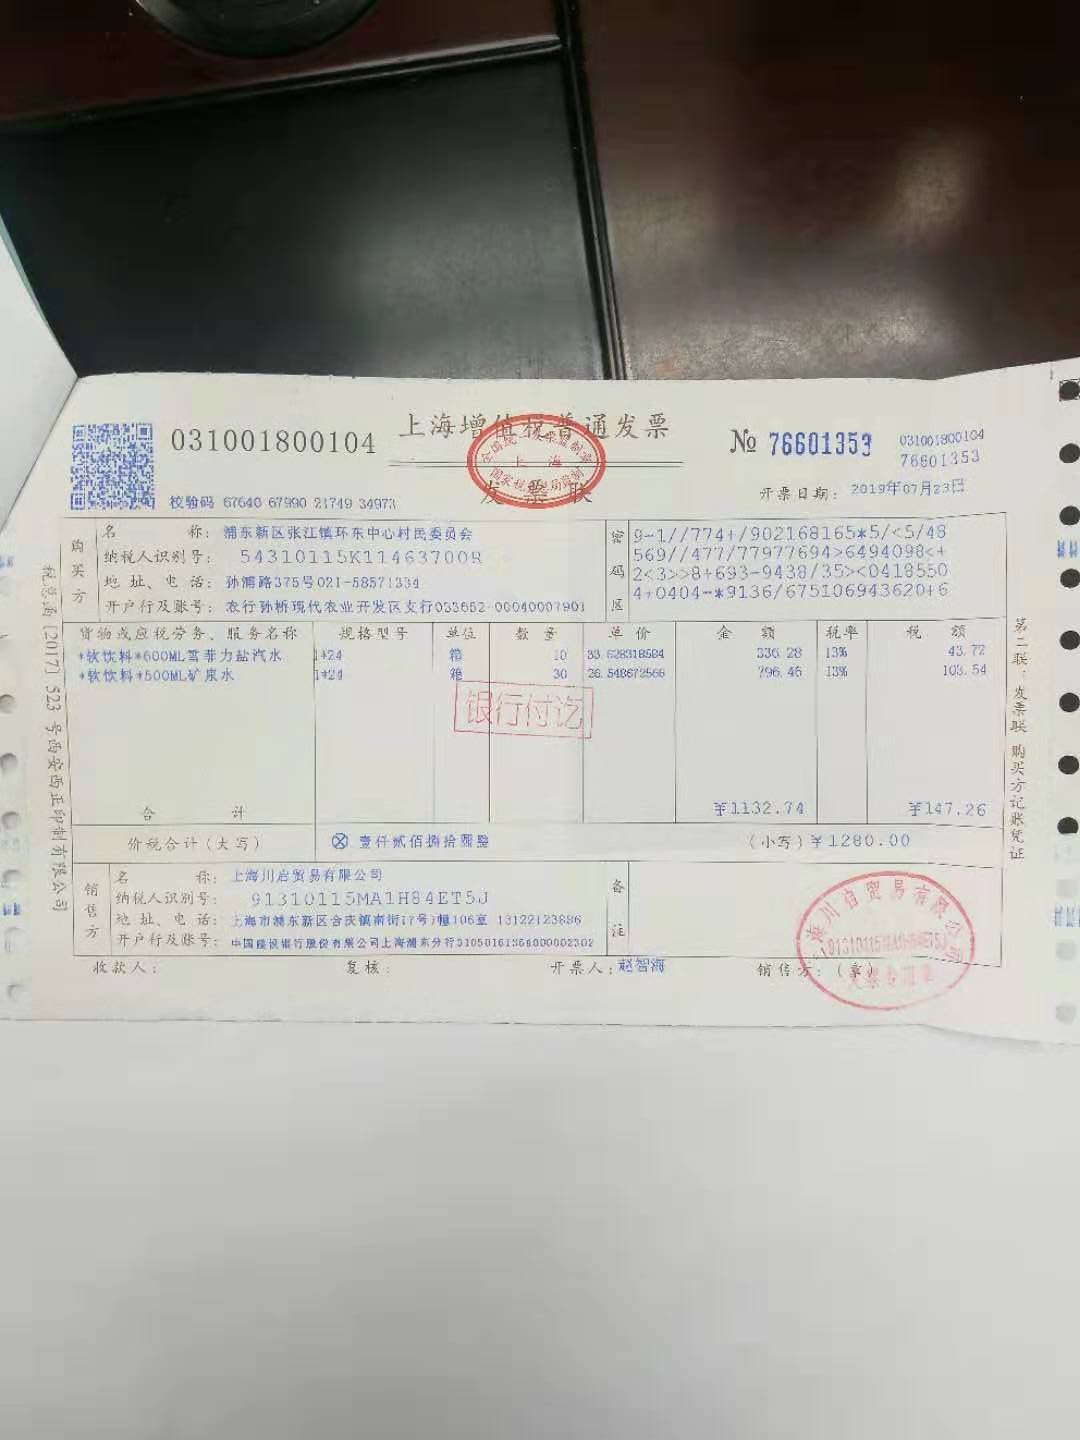 031001800104
上海增值税普通发票
发票联
上海
№ 76601353
031001800104
76601353
校验码 67640 67990 21749 34973
开票日期： 2019年07月23日
购买方
名 称： 浦东新区张江镇环东中心村民委员会
纳税人识别号： 54310115K11463700R
地 址、电 话： 孙浦路375号021-58571334
开户行及账号： 农行孙桥现代农业开发区支行033652-00040007901
密码区
9-1//774+/902168165*5/<5/48
569//477/77977694>6494098<+
2<3>>8+693-9438/35><0418550
4+0404-*9136/675106943620+6
货物或应税劳务、服务名称 规格型号 单位 数 量 单 价 金 额 税率 税 额
*软饮料*600ML雪菲力盐汽水 1*24 箱 10 33.628318584 336.28 13% 43.72
*软饮料*500ML矿泉水 1*24 箱 30 26.548672566 796.46 13% 103.54
银行付讫
合 计 ￥1132.74 ￥147.26
价税合计（大写） ⊗ 壹仟贰佰捌拾圆整 （小写）￥1280.00
销售方
名 称： 上海川启贸易有限公司
纳税人识别号： 91310115MA1H84ET5J
地 址、电 话： 上海市浦东新区合庆镇南街17号1幢106室 13122123886
开户行及账号： 中国建设银行股份有限公司上海浦东分行31050161364000002302
备注
收款人： 复核： 开票人： 赵智海 销售方：（章）
上海川启贸易有限公司
91310115MA1H84ET5J
发票专用章
税总函〔2017〕523 号西安西正印制有限公司
第二联：发票联 购买方记账凭证